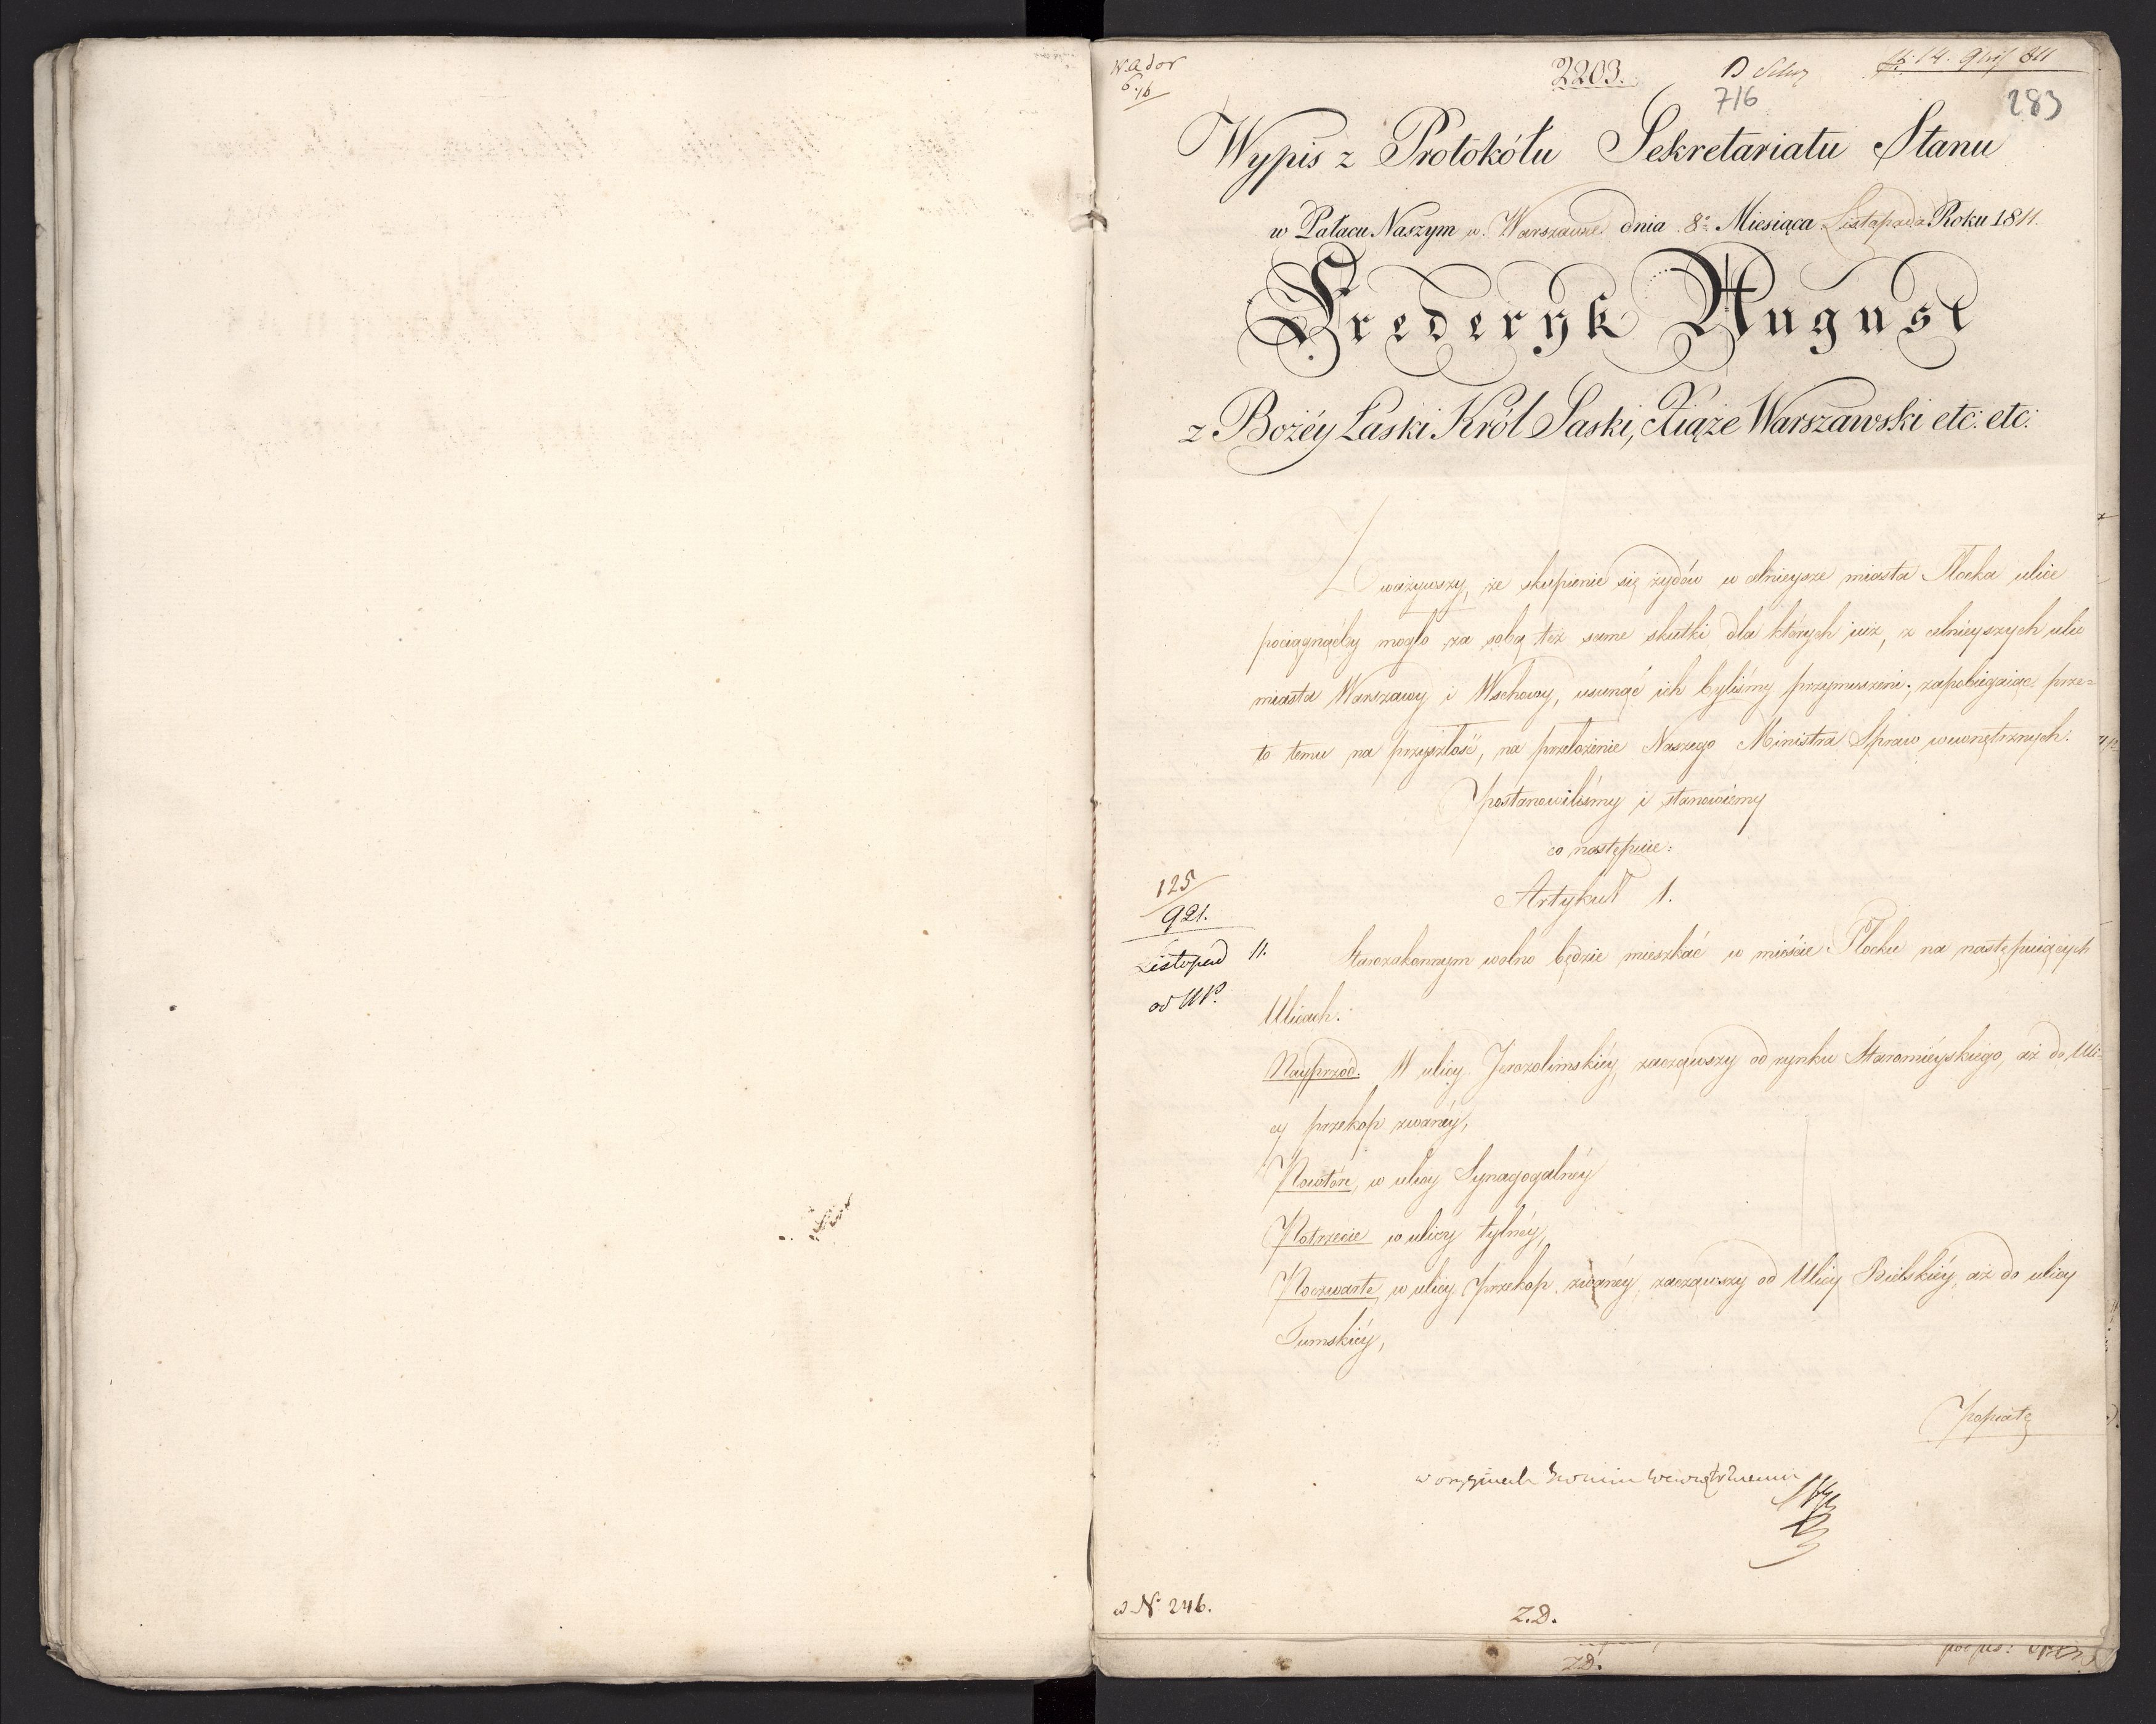 2203.
716
283
Wypis z Protokółu Sekretariatu Stanu
w Pałacu Naszym w Warszawie dnia 8º Miesiąca Listopada Roku 1811.
Frederyk August
z Bożéy Łaski Król Saski, Xiąże Warszawski etc: etc:
Zważywszy, że skupienie się żydów w celnieysze miasta Płocka ulice
pociągnąćby mogło za sobą też same skutki dla których już, z celnieyszych ulic
miasta Warszawy i Wschowy, usunąć ich byliśmy przymuszeni; zapobiegaiąc prze=
to temu na przyszłość, na przełożenie Naszego Ministra Spraw wewnętrznych.
postanowiliśmy i stanowiemy
co następuie:
Artykuł 1.
125
921.
Listopad 11.
Starozakonnym wolno będzie mieszkać w mieście Płocku na następuiących
Ulicach.
Nayprzód. W ulicy Jerozolimskiéy, zacząwszy od rynku Staromiéyskiego, aż do Uli-
cy przekop zwanéy,
Powtóre, w ulicy Synagogalnéy
Potrzecie w ulicy tylnéy,
Poczwarte, w ulicy Przekop zwanéy, zacząwszy od Ulicy Bielskiéy, aż do ulicy
Tumskiéy,
Popiąte
w N. 246.
Z.D.
Z.D.